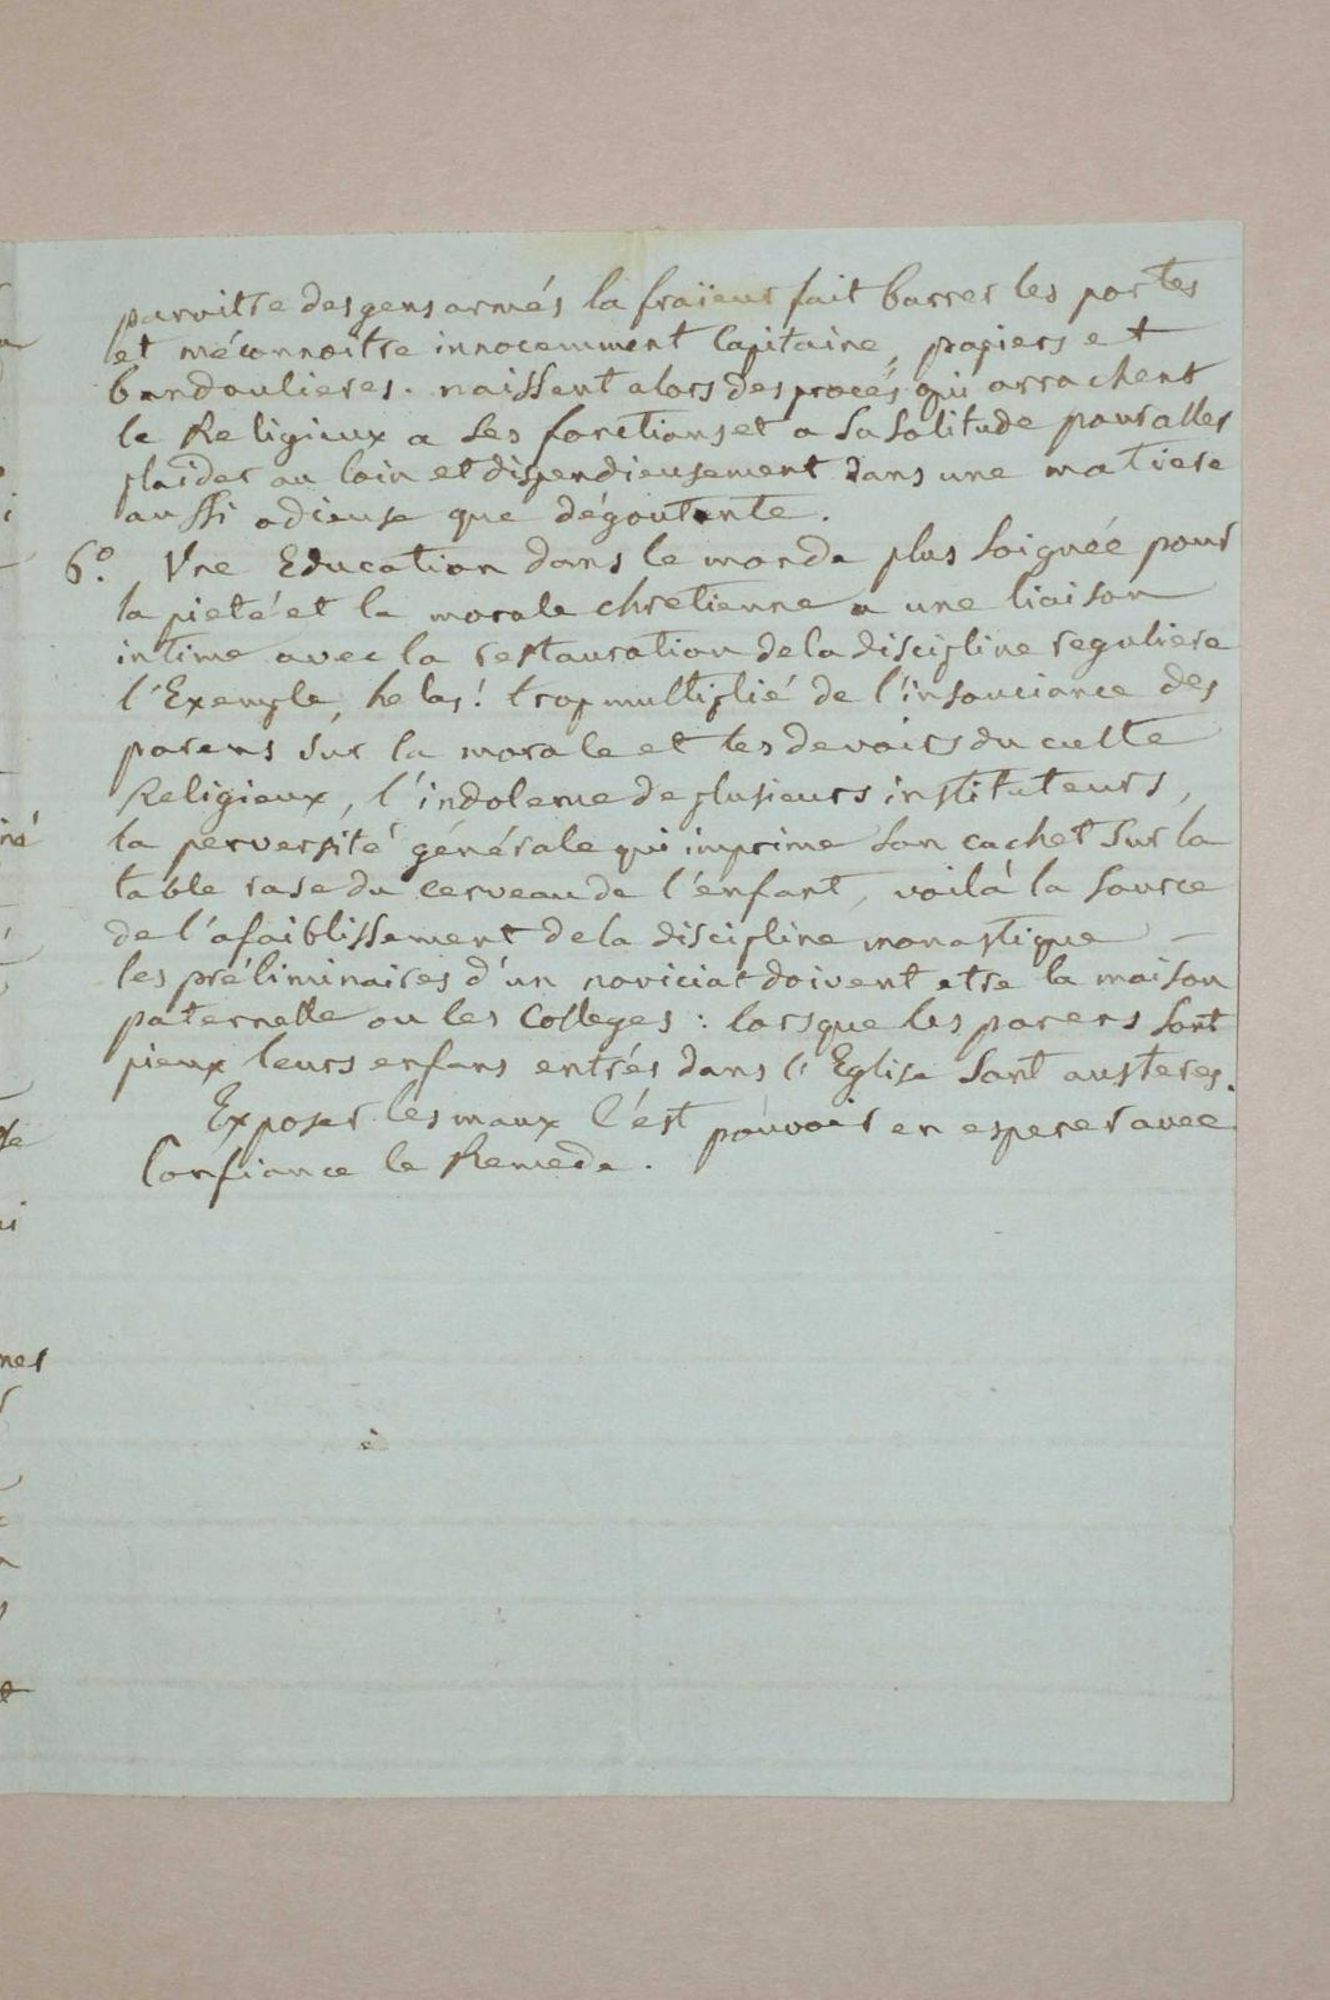 paroitre des gens armés la fraïeur fait barrer les portes
et méconnoitre innocemment Capitaine, papiers et
bandoulieres. naissent alors des procés qui arrachent
le Religieux a ses fonctions et a sa solitude pour aller
plaider au loin et dispendieusement dans une matiere
aussi odieuse que dégoutante.
6.° Une Education dans le monde plus soignée pour
la pieté et la morale chretienne a une liaison
intime avec la restauration de la discipline reguliere
l'Exemple, helas! trop multiplié de l'insouciance des
parens sur la morale et les devoirs du culte
Religieux, l'indolence de plusieurs instituteurs,
la perversité générale qui imprime son cachet sur la
table rase du cerveau de l'enfant, voilà la source
de l'afoiblissement de la discipline monastique —
les préliminaires d'un noviciat doivent etre la maison
paternelle ou les Colleges : lorsque les parens sont
pieux leurs enfans entrés dans l'Eglise sont austeres.
Exposer les maux c'est pouvoir en esperer avec
Confiance le Remede.